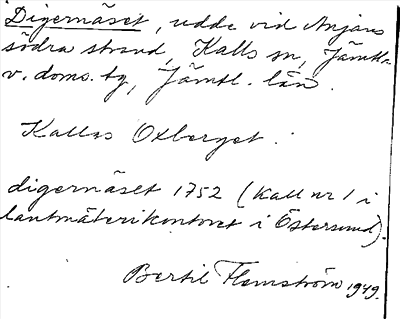 Digernäset, udde vid Anjans
södra strand, Kalls sn, Jämtl.
v. doms. tg, Jämtl. län.
Kallas Oxberget.
digernäset 1752 (Kall nr 1 i
lantmäterikontoret i Östersund).
Bertil Flemström 1949.